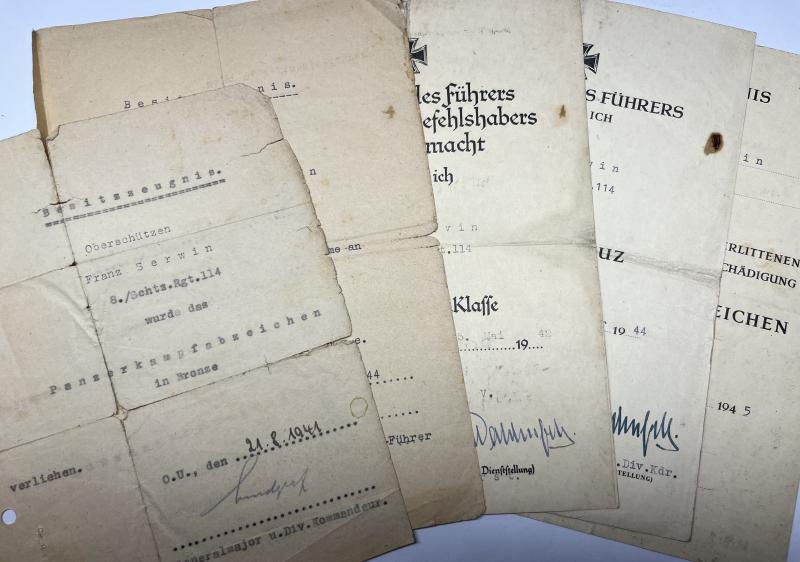 Besitzzeugnis.
Oberschützen
Franz Gerwin
8./Schtz.Rgt.114
wurde das
Panzerkampfabzeichen
in Bronze
verliehen.
O.U., den 21.8.1941
Generalmajor u.Div.Kommandeur.
Besitzzeugnis.
n
me an
e.
44
-Führer
des Führers
efehlshabers
macht
ich
rwin
t.114
Klasse
Mai 19 42
(Dienststellung)
S FÜHRERS
ICH
win
.114
UZ
19 44
. Div.Kdr.
TELLUNG)
NIS
in
ERLITTENEN
CHÄDIGUNG
EICHEN
194 5